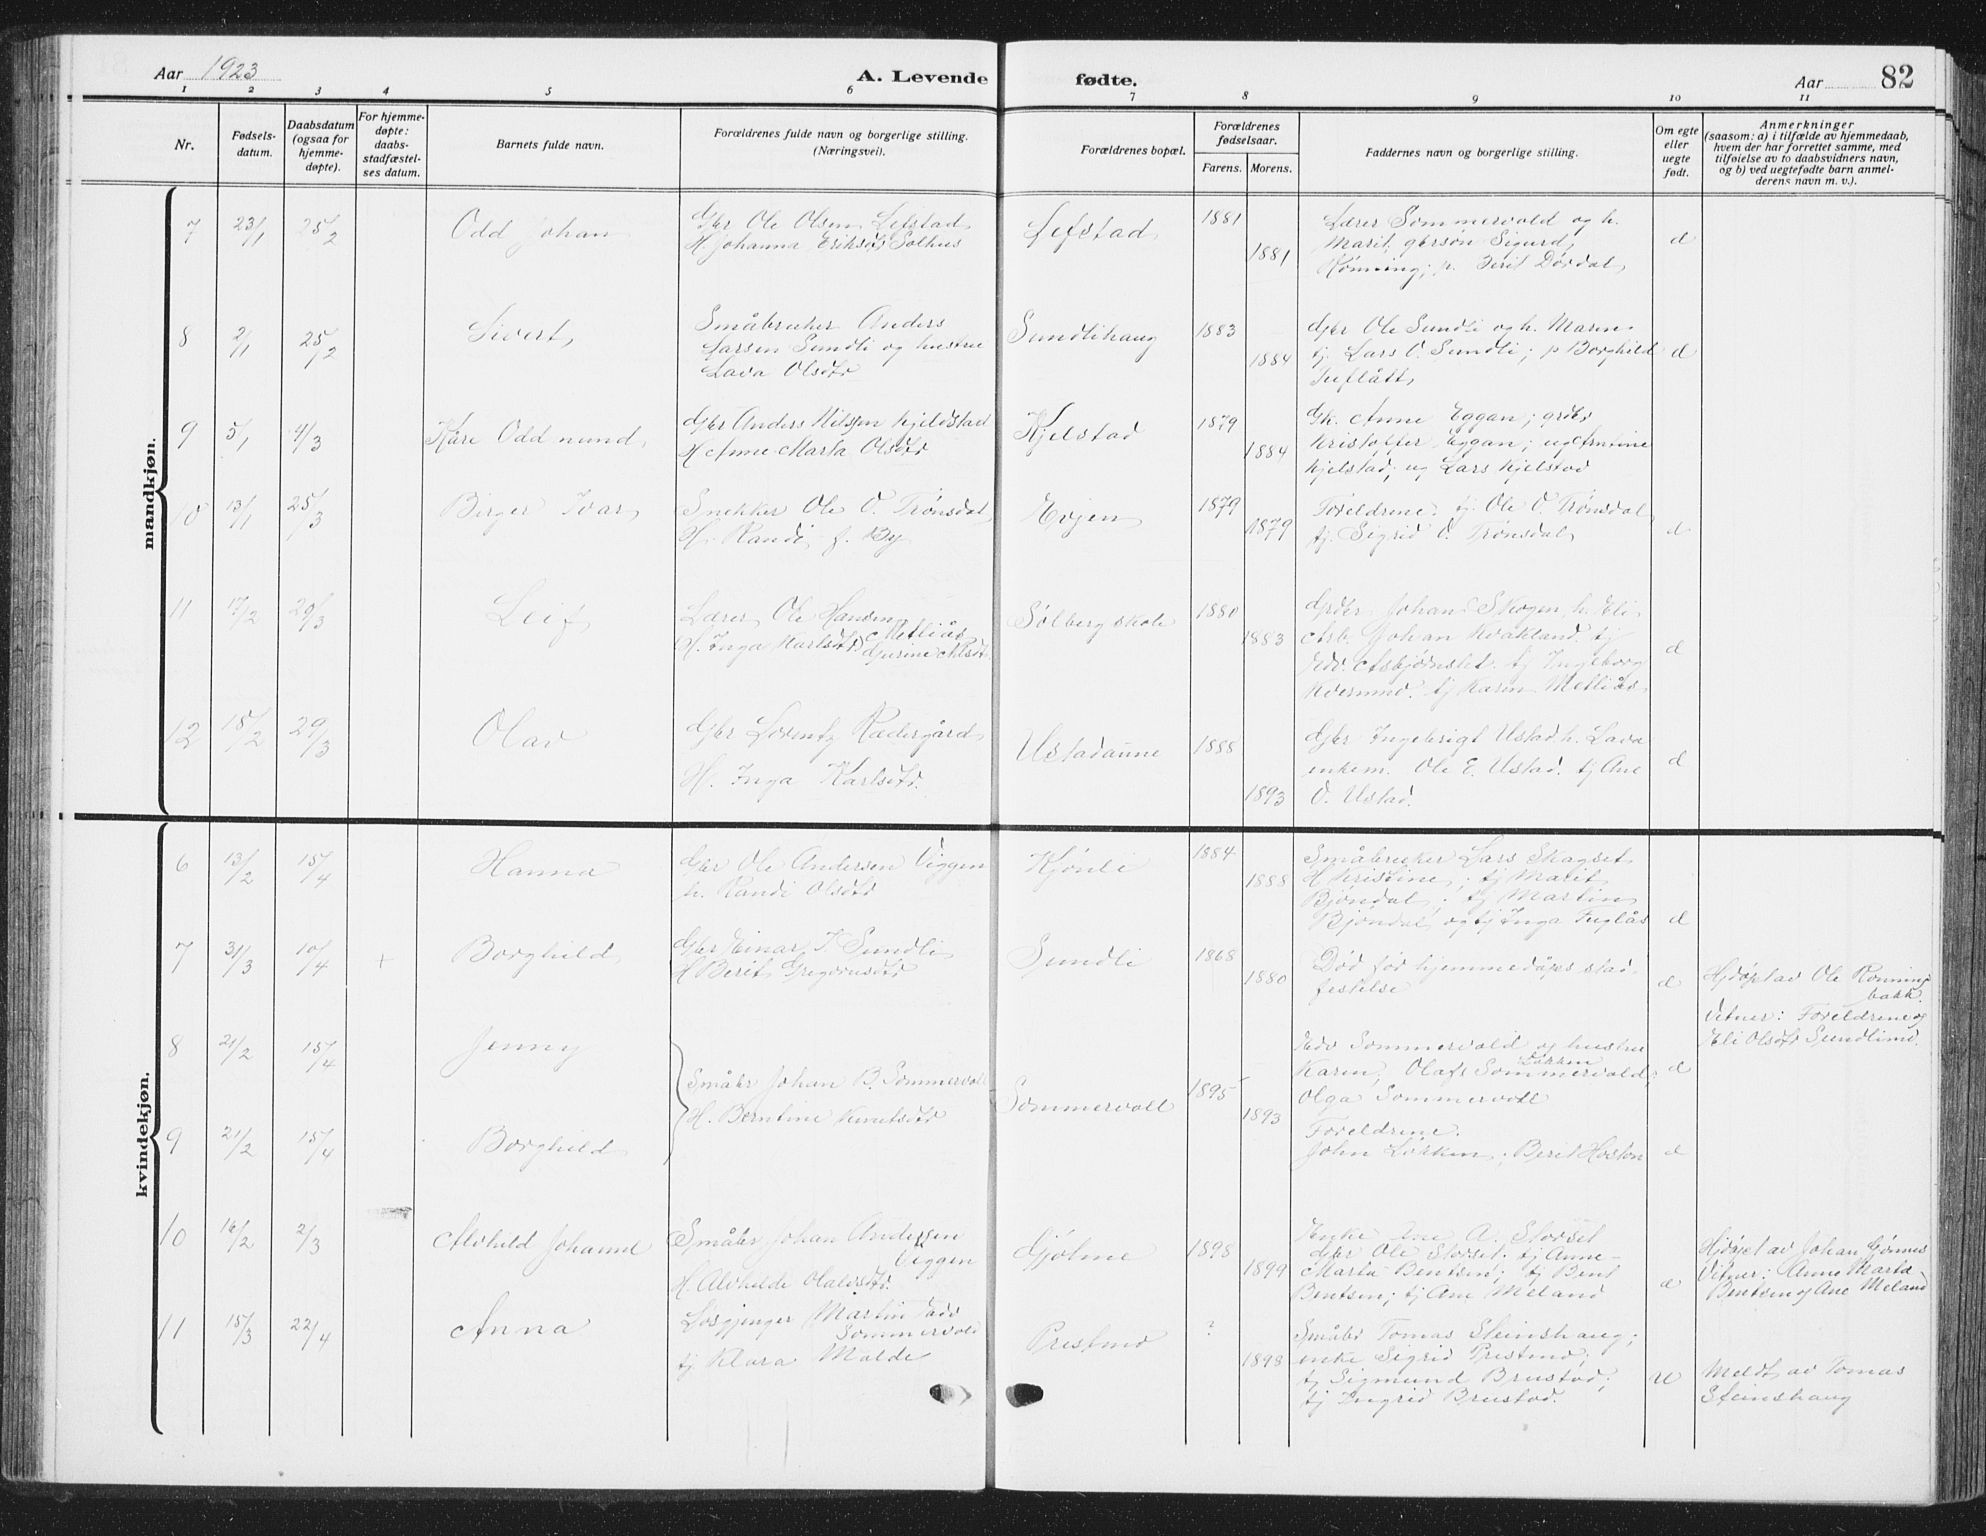 Aar 1923
A. Levende fødte.
Aar 82
1 2 3 4 5 6 7 8 9 10 11
Nr.
Fødsels-
datum.
Daabsdatum
(ogsaa for
hjemme-
døpte).
For hjemme-
døpte:
daabs-
stadfæstel-
ses datum.
Barnets fulde navn.
Forældrenes fulde navn og borgerlige stilling.
(Næringsvei).
Forældrenes bopæl.
Forældrenes
fødselsaar.
Farens. Morens.
Faddernes navn og borgerlige stilling.
Om egte
eller
uegte
født.
Anmerkninger
(saasom: a) i tilfælde av hjemmedaab,
hvem der har forrettet samme, med
tilføielse av to daabsvidners navn,
og b) ved uegtefødte barn anmel-
derens navn m. v.).
mandkjøn.
7 23/1 25/2 Odd Johan
Gbr Ole Olsen Lefstad
H Johanna Eriksdtr Solhus
Lefstad 1881 1881
Lærer Sommervold og h.
Marit, gbrsøn Sigurd
Rønning; p. Berit Dørdal
d
8 2/1 25/2 Sivert
Småbruker Anders
Larsen Sundli og hustru
Lava Olsdtr
Sundlihaug 1883 1884
Gbr Ole Sundli og h. Maren
tj. Lars O. Sundli; p Borghild
d
9 5/1 4/3 Kåre Oddmund
Gbr Anders Nilssen Kjeldstad
H Anne Marta Olsdtr
Kjelstad 1879 1884
Gk. Anne Eggan; grdbr
Kristoffer Eggan; ug Arntine
Kjelstad; ug Lars Kjelstad
10 13/1 25/3 Birger Ivar
Snekker Ole O. Trønsdal
H. Randi f. By
Evjen 1879 1879
Foreldrene, tj. Ole O. Trønsdal
tj. Sigrid O. Trønsdal
d
11 17/2 29/3 Leif
Lærer Ole Hansen Metliås
H. Inga Karlsdtr Gurine Nilsdt
Sølberg skole 1880 1883
Grdbr Johan Skogen, h. Eli
Arb. Johan Kvakland. tj
Edv. Asbjørnslet. tj Ingeborg
Kvernmo. tj Karen Metliås
d
12 18/2 29/3 Olav
Gbr Lorentz Rædergård
H. Inga Karlsdtr.
Ustadaune 1888 1893
Gbr Ingebrigt Ustad h. Lava
enkem. Ole E. Ustad. tj Ane
O. Ustad.
d
kvindekjøn.
6 13/2 15/4 Hanna
Gbr Ole Andersen Viggen
h. Randi Olsdtr
Kjønli 1884 1888
Småbruker Lars Skagset
H Kristine; tj Marit
Bjøndal; tj Martin
Bjøndal og tj Inga Fuglås
d
7 31/3 10/4 + Borghild
Gbr Einar I Sundli
H Berit Gregoriusdtr
Sundli 1868 1880
Død før hjemmedåpes stad-
festelse
d
Hjdøpt av Ole Rønnings
bakk.
Vitner: Foreldrene og
Eli Olsdtr Sundlimo.
8 21/2 15/4 Jenny
Småbr Johan B. Sommervoll
H. Berntine Knutsdtr
Sommervoll 1895 1893
Edv Sommervold og hustru
Karen, Olaf Løkken Sommervold;
Olga Sommervoll
d
9 21/2 15/4 Borghild
Foreldrene.
John Løkken; Berit Hoston
d
10 16/2 2/3 Alvhild Johanne
Småbr Johan Andersen
Viggen
H. Alvhilde Olalvsdtr.
Gjølme 1898 1899
Enke Ane A. Storset
Gbr Ole Storset. tj Anne-
Marta Bentsen; tj Bent
Bentsen; tj Ane Meland
d
Hjdøpt av Johan Gjønnes
Vitner: Anne Marta
Bentsen og Ane Meland
11 15/3 22/4 Anna
Løsgjenger Martin
Sommervold
tj Klara Malde
Prestmo ? 1898
Småbr Tomas Steinshaug;
enke Sigrid Prestmo;
tj Sigmund Brustad;
tj Ingrid Brustad.
u
Meldt av Tomas
Steinshaug